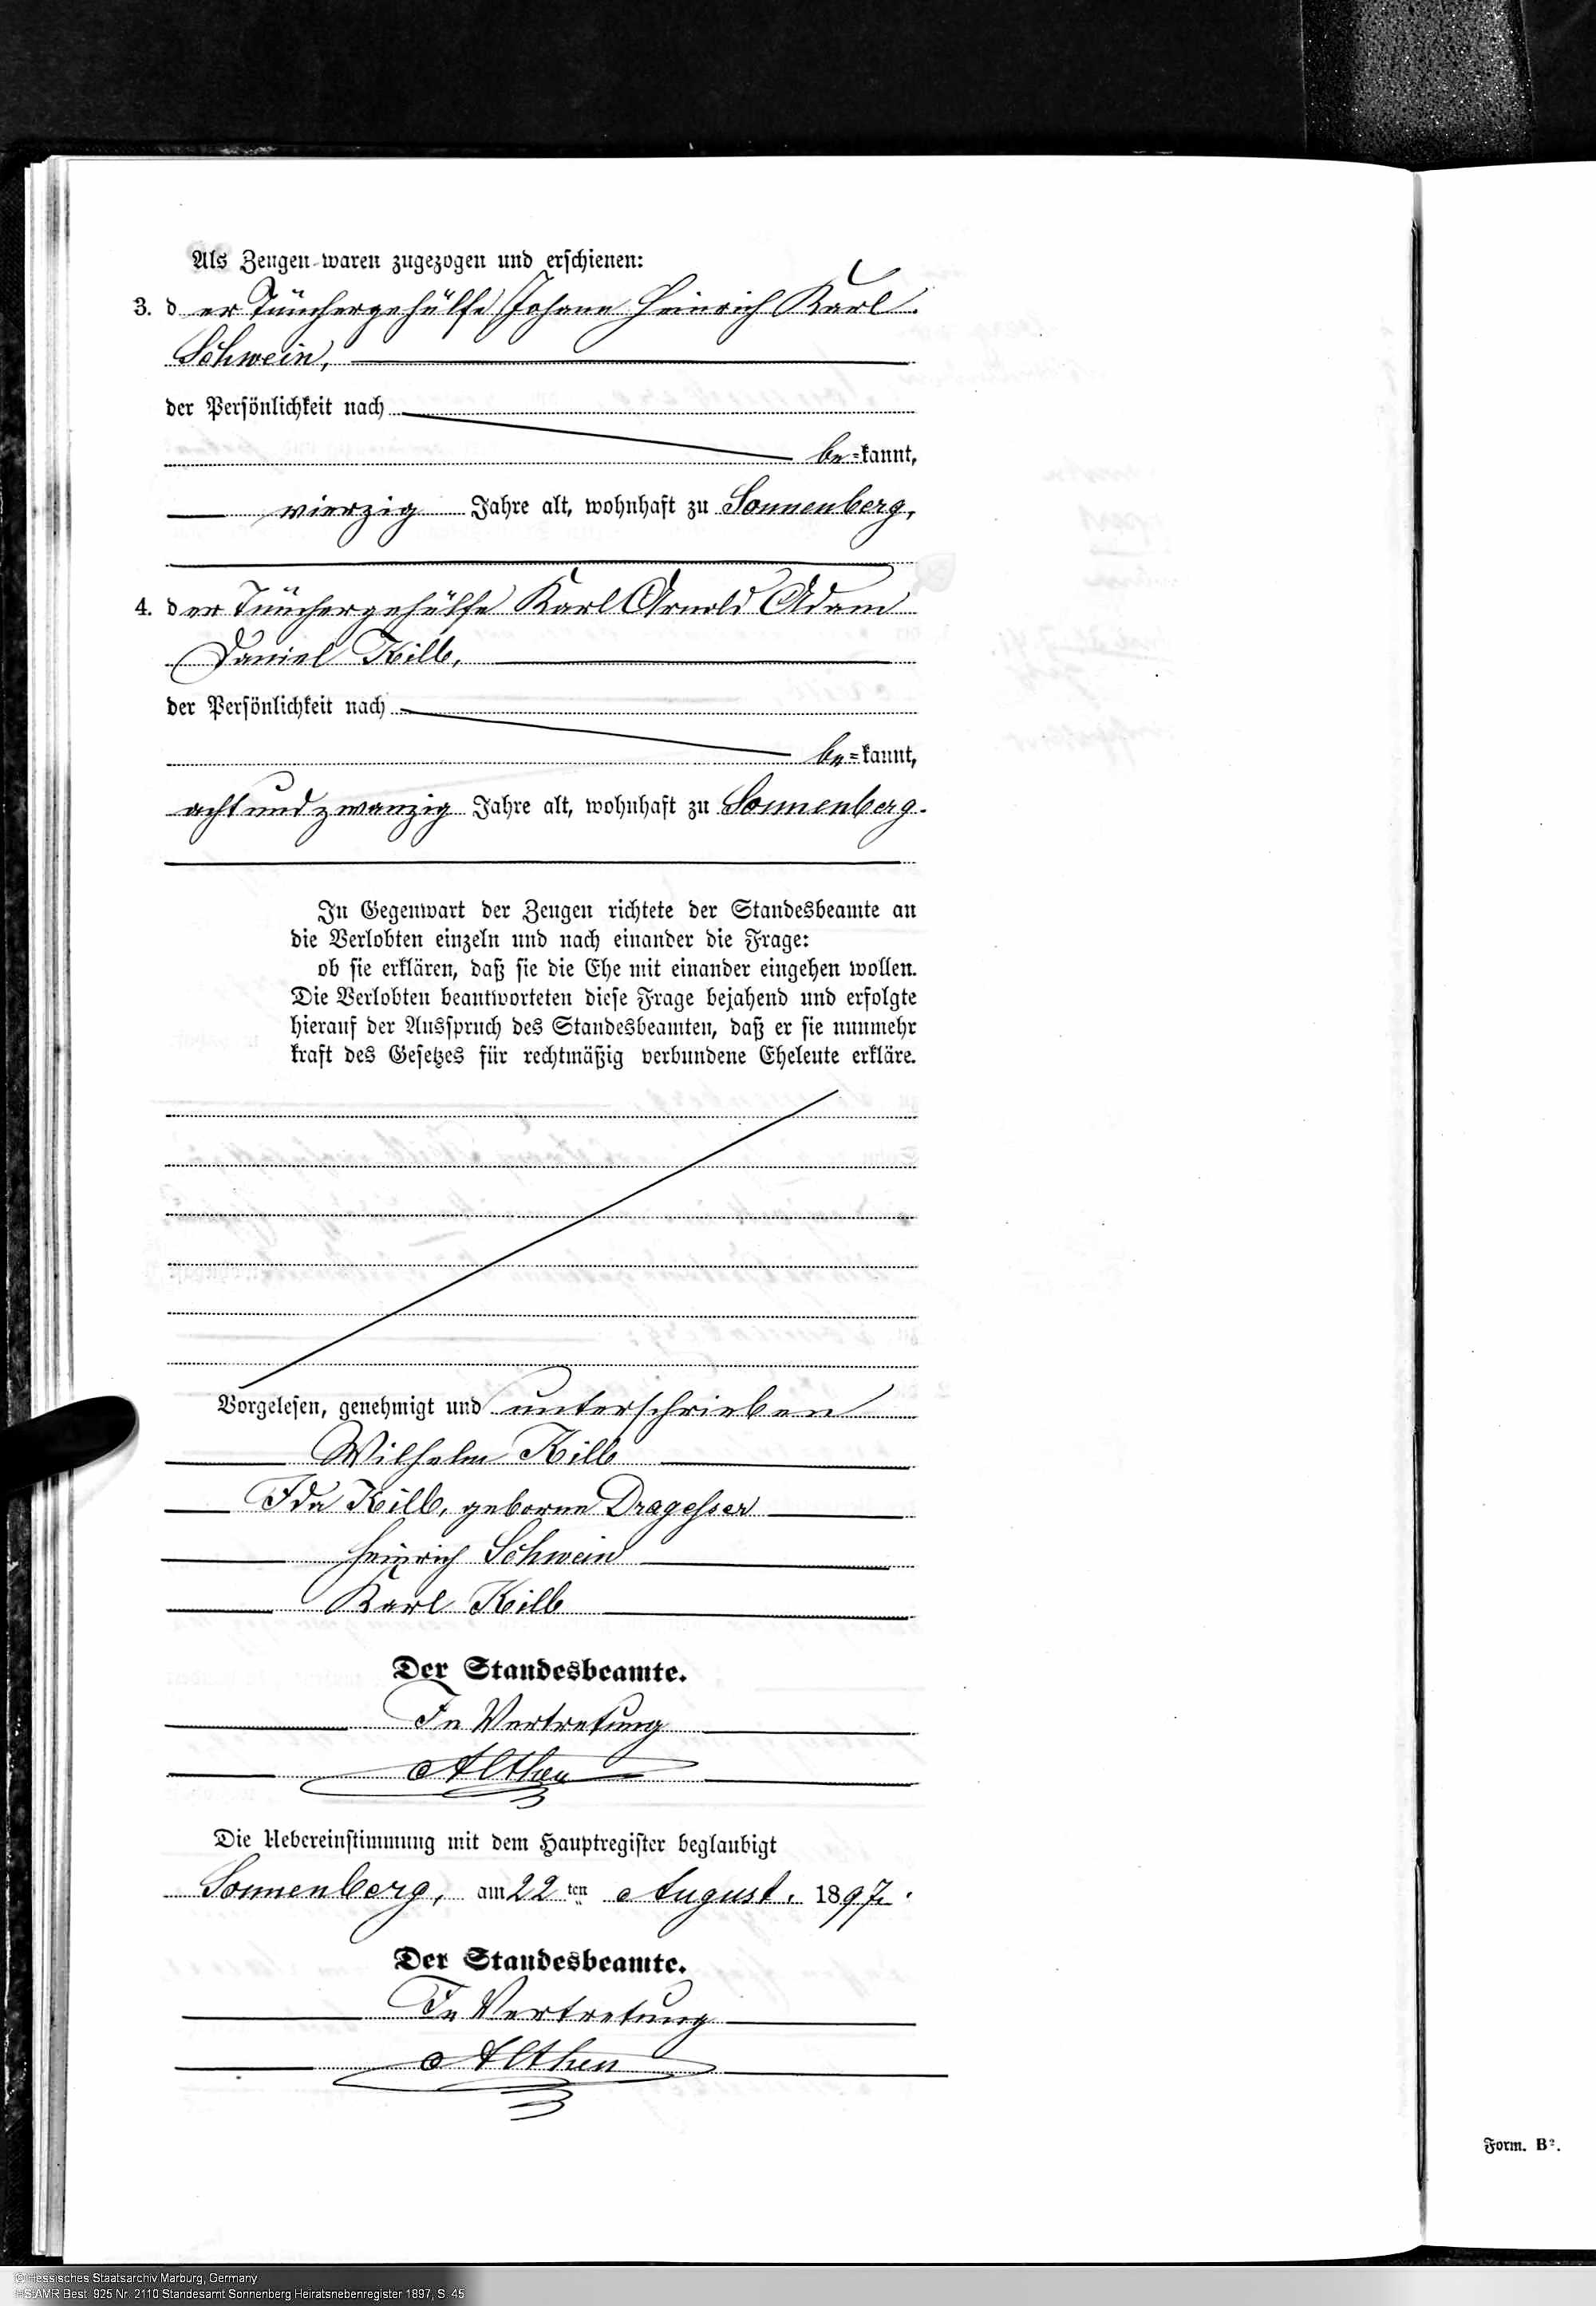 Als Zeugen waren zugezogen und erschienen:
3. der Tünchergehülfe Johann Heinrich Karl
Schwein,
der Persönlichkeit nach
be=kannt,
vierzig Jahre alt, wohnhaft zu Sonnenberg,
4. der Tünchergehülfe Karl Arnold Adam
Daniel Kilb,
der Persönlichkeit nach
be=kannt,
achtundzwanzig Jahre alt, wohnhaft zu Sonnenberg.
In Gegenwart der Zeugen richtete der Standesbeamte an
die Verlobten einzeln und nach einander die Frage:
ob sie erklären, daß sie die Ehe mit einander eingehen wollen.
Die Verlobten beantworteten diese Frage bejahend und erfolgte
hierauf der Ausspruch des Standesbeamten, daß er sie nunmehr
kraft des Gesetzes für rechtmäßig verbundene Eheleute erkläre.
Vorgelesen, genehmigt und unterschrieben
Wilhelm Kilb
Ida Kilb, geborne Dragesser
Heinrich Schwein
Karl Kilb
Der Standesbeamte.
In Vertretung
Althen
Die Uebereinstimmung mit dem Hauptregister beglaubigt
Sonnenberg, am 22 ten August. 1897.
Der Standesbeamte.
In Vertretung
Althen
Form. B².
© Hessisches Staatsarchiv Marburg, Germany
HStAMR Best. 925 Nr. 2110 Standesamt Sonnenberg Heiratsnebenregister 1897, S. 45